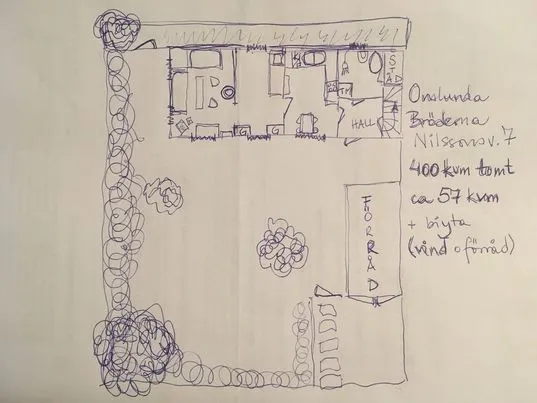 STÄD
K
TM
HALL
G
G
FÖRRÅD
Onslunda
Bröderna
Nilssonsv. 7
400 kvm tomt
ca 57 kvm
+ biyta
(vind o förråd)